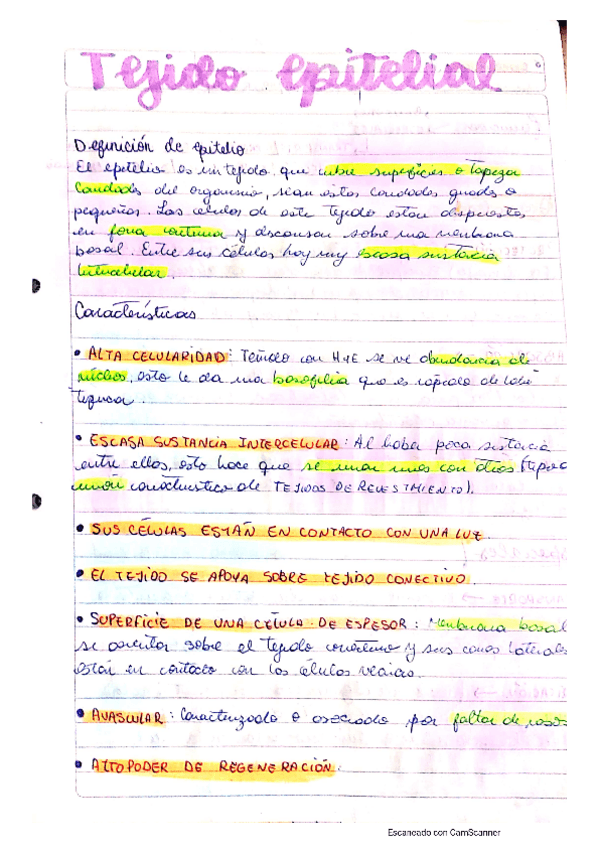 Tejido epitelial
Definición de epitelio
El epitelio es un tejido que cubre superficies o tapiza
cavidades del organismo, sean estas cavidades grandes o
pequeñas. Las células de este tejido estan dispuestas
en forma continua y descansan sobre una membrana
basal. Entre sus células hay muy escasa sustancia
intercelular.
Características
• ALTA CELULARIDAD: Teñido con HyE se ve abundancia de
núcleos, esto le da una basofilia que es rápido de
• ESCASA SUSTANCIA INTERCELULAR: Al haber poca sustancia
entre ellos, esto hace que se unan unas con otras (tipo
unión característico de TEJIDOS DE REVESTIMIENTO).
• SUS CÉLULAS ESTÁN EN CONTACTO CON UNA LUZ.
• EL TEJIDO SE APOYA SOBRE TEJIDO CONECTIVO.
• SUPERFICIE DE UNA CÉLULA DE ESPESOR: Membrana basal
se sobre el tejido conectivo y sus caras laterales
están en contacto con las células vecinas.
• AVASCULAR: Caracterizado o asociado por faltar de vasos
• ALTO PODER DE REGENERACIÓN.
Escaneado con CamScanner